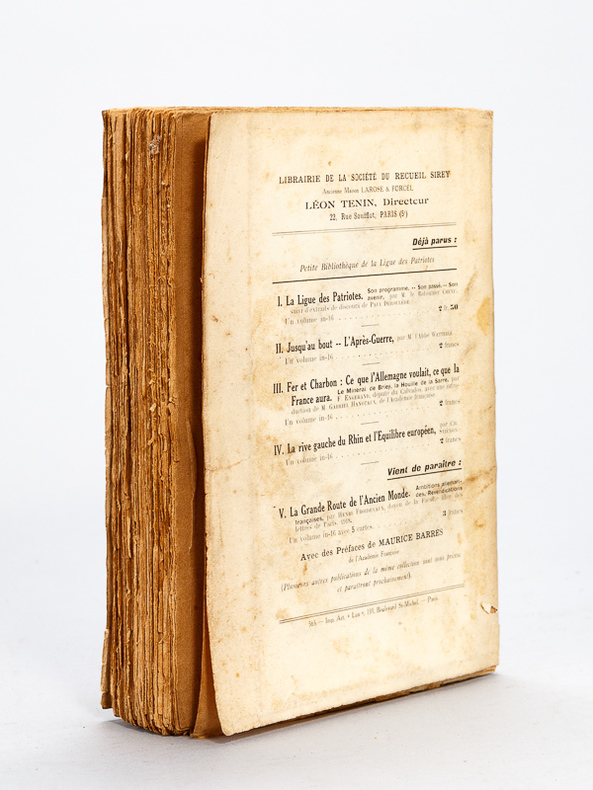 LIBRAIRIE DE LA SOCIÉTÉ DU RECUEIL SIREY
Ancienne Maison LAROSE & FORCEL
LÉON TENIN, Directeur
22, Rue Soufflot, PARIS (5e)
Déjà parus :
Petite Bibliothèque de la Ligue des Patriotes
I. La Ligue des Patriotes. Son programme. -- Son passé. -- Son
avenir, par M. le
suivi d'extraits de discours de PAUL DÉROULÈDE.
Un volume in-16 . . . . . . . . 2 fr. 50
II. Jusqu'au bout -- L'Après-Guerre, par M. l'Abbé WETTERLÉ.
Un volume in-16 . . . . . . . . 2 francs
III. Fer et Charbon : Ce que l'Allemagne voulait, ce que la
France aura. Le Minerai de Briey, la Houille de la Sarre, par
F. ENGERAND, député du Calvados, avec une intro-
duction de M. GABRIEL HANOTAUX, de l'Académie française.
Un volume in-16 . . . . . . . . 2 francs
IV. La rive gauche du Rhin et l'Equilibre européen, par
Un volume in-16 . . . . . . . . 2 francs
Vient de paraître :
V. La Grande Route de l'Ancien Monde. Ambitions
des, Revendications
françaises, par HENRI FROIDEVAUX, doyen de la Faculté libre des
lettres de Paris, 1918.
Un volume in-16 avec 5 cartes. . . . 3 francs
Avec des Préfaces de MAURICE BARRÈS
de l'Académie Française
(Plusieurs autres publications de la même collection sont sous presse
et paraîtront prochainement).
Imp. Art. « Lux », 131, Boulevard St-Michel. — Paris.